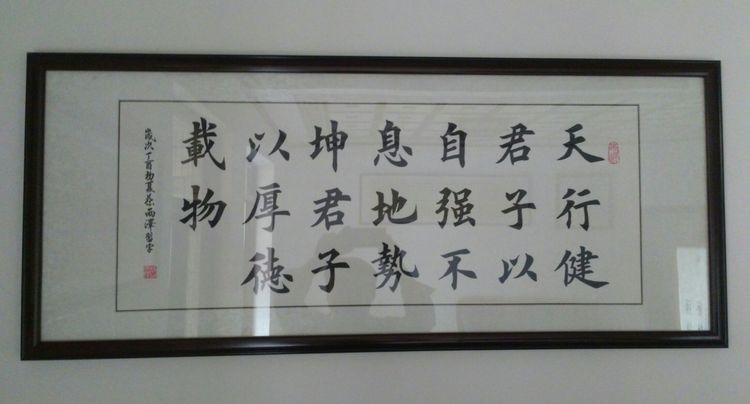 天行健
君子以
自强不
息地勢
坤君子
以厚德
載物
歲次丁酉初夏雨澤